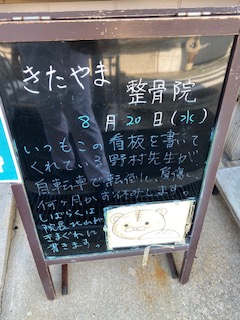 きたやま
整骨院
8月20日(水)
いつもこの看板を書いて
くれている野村先生が
自転車で転倒し、負傷し
何ヶ月かお休みします。
しばらくは
院長が
きまぐれに
書きます。